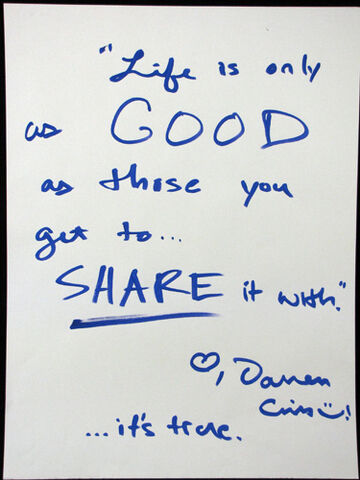 "Life is only
as GOOD
as those you
get to...
SHARE it with."
♡, Darren
Criss!
...it's true.